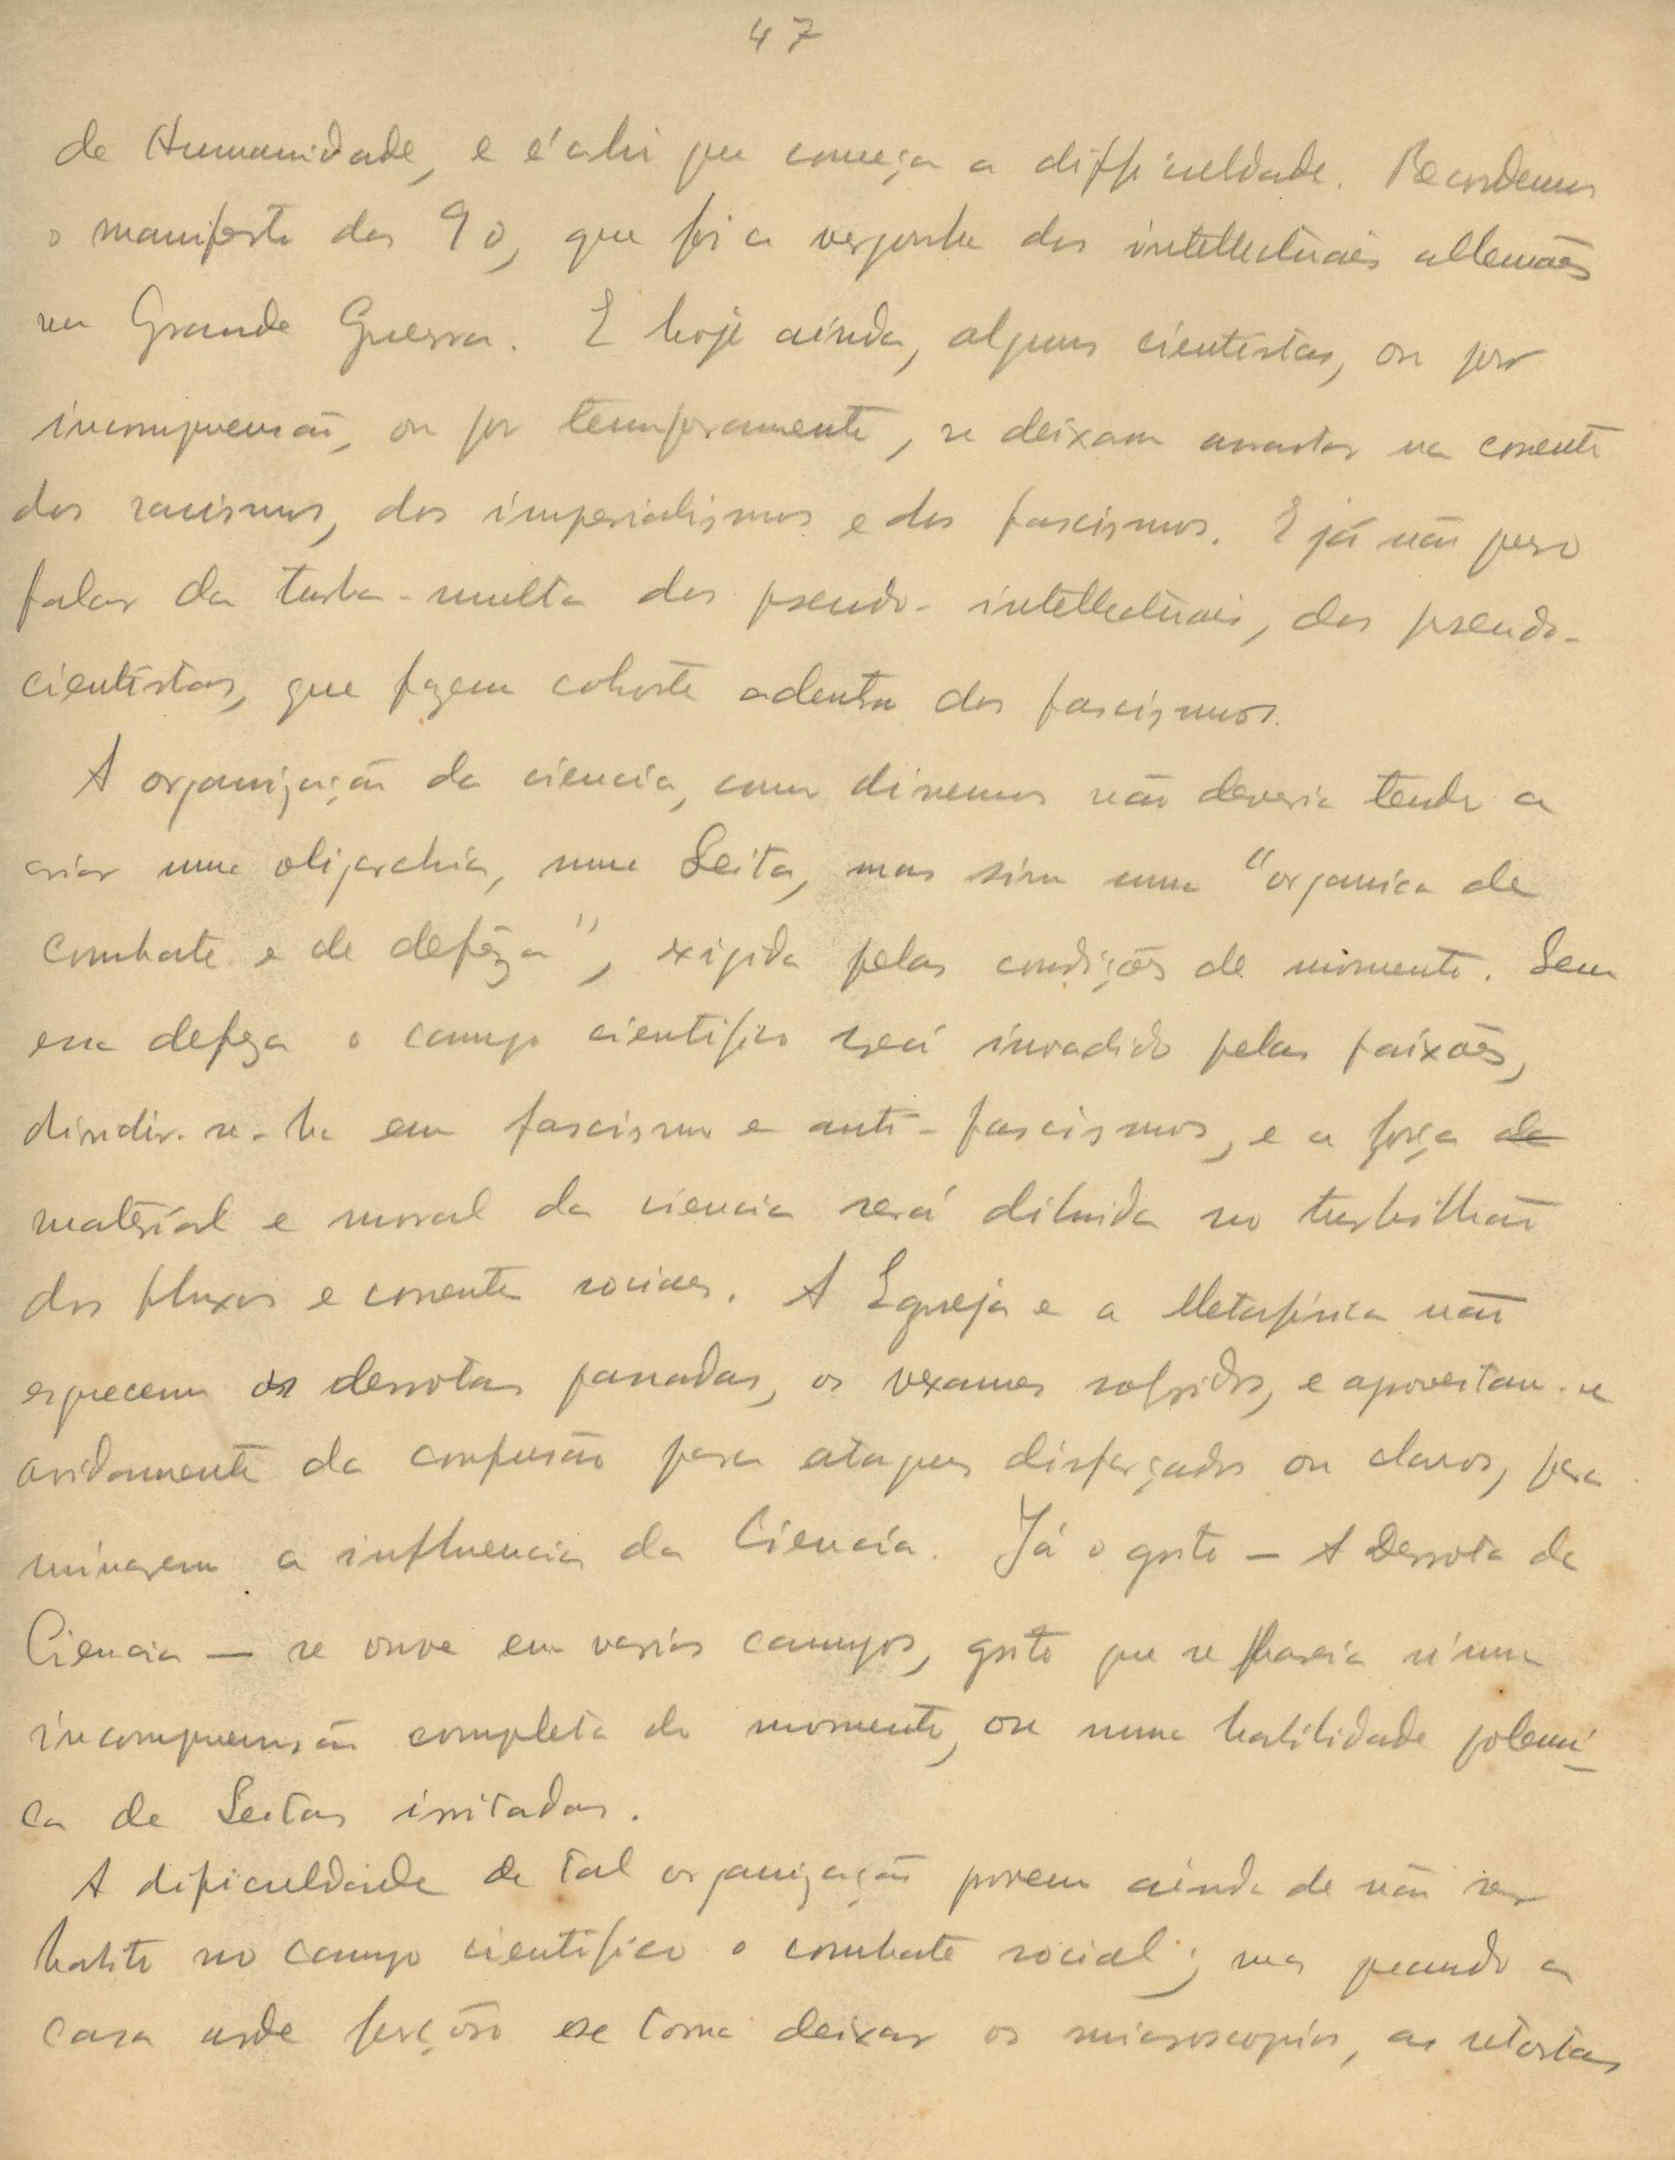 47
de Humanidade, e é ahi que começa a difficuldade. Recordemos
o manifesto dos 90, que foi a vergonha dos intellectuaes allemães
na Grande Guerra. E hoje ainda, alguns cientistas, ou por
incompreensão, ou por temperamento, se deixam arrastar na corrente
dos racismos, dos imperialismos e dos fascismos. E já não quero
falar da turba-multa dos pseudo-intellectuais, dos pseudo-
cientistas, que fazem cohorte adentro dos fascismos.
A organização da ciencia, como dissemos não deveria tender a
criar uma oligarchia, uma Seita, mas sim uma "organica de
combate e de defêza", exigida pelas condições de momento. Sem
essa defeza o campo cientifico será invadido pelas paixões,
dividir-se-ha em fascismo e anti-fascismos, e a força de
material e moral da ciencia será diluida no turbilhão
dos fluxos e corrente sociaes. A Egreja e a Metafisica não
esquecem as derrotas passadas, os vexames sofridos, e aproveitam-se
avidamente da confusão para ataques disfarçados ou claros, para
minarem a influencia da Ciencia. Já o grito — A Derrota da
Ciencia — se ouve em varios campos, grito que se baseia n'uma
incompreensão completa do momento, ou numa habilidade polemi-
ca de Seitas irritadas.
A dificuldade de tal organização provem ainda de não ser
habito no campo cientifico o combate social; mas quando a
casa arde forçoso se torna deixar os microscopios, as retortas